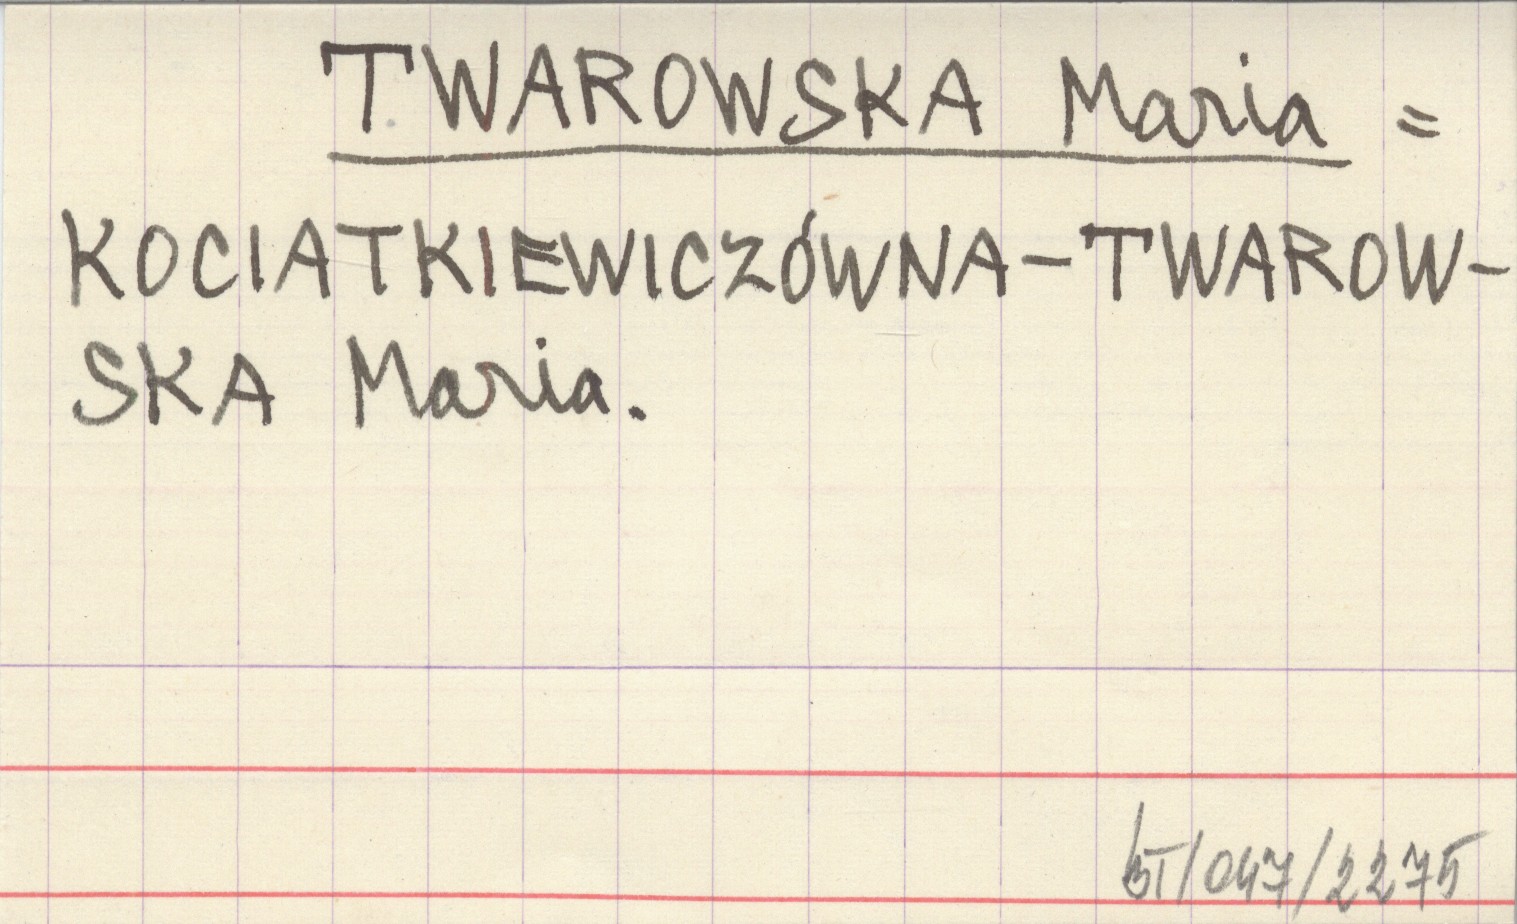 TWAROWSKA Maria =
KOCIATKIEWICZÓWNA-TWAROW-
SKA Maria.
/047/2275